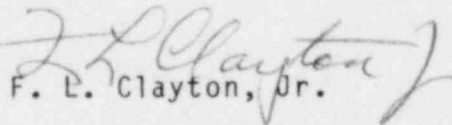 F L Clayton J
F. L. Clayton, Jr.